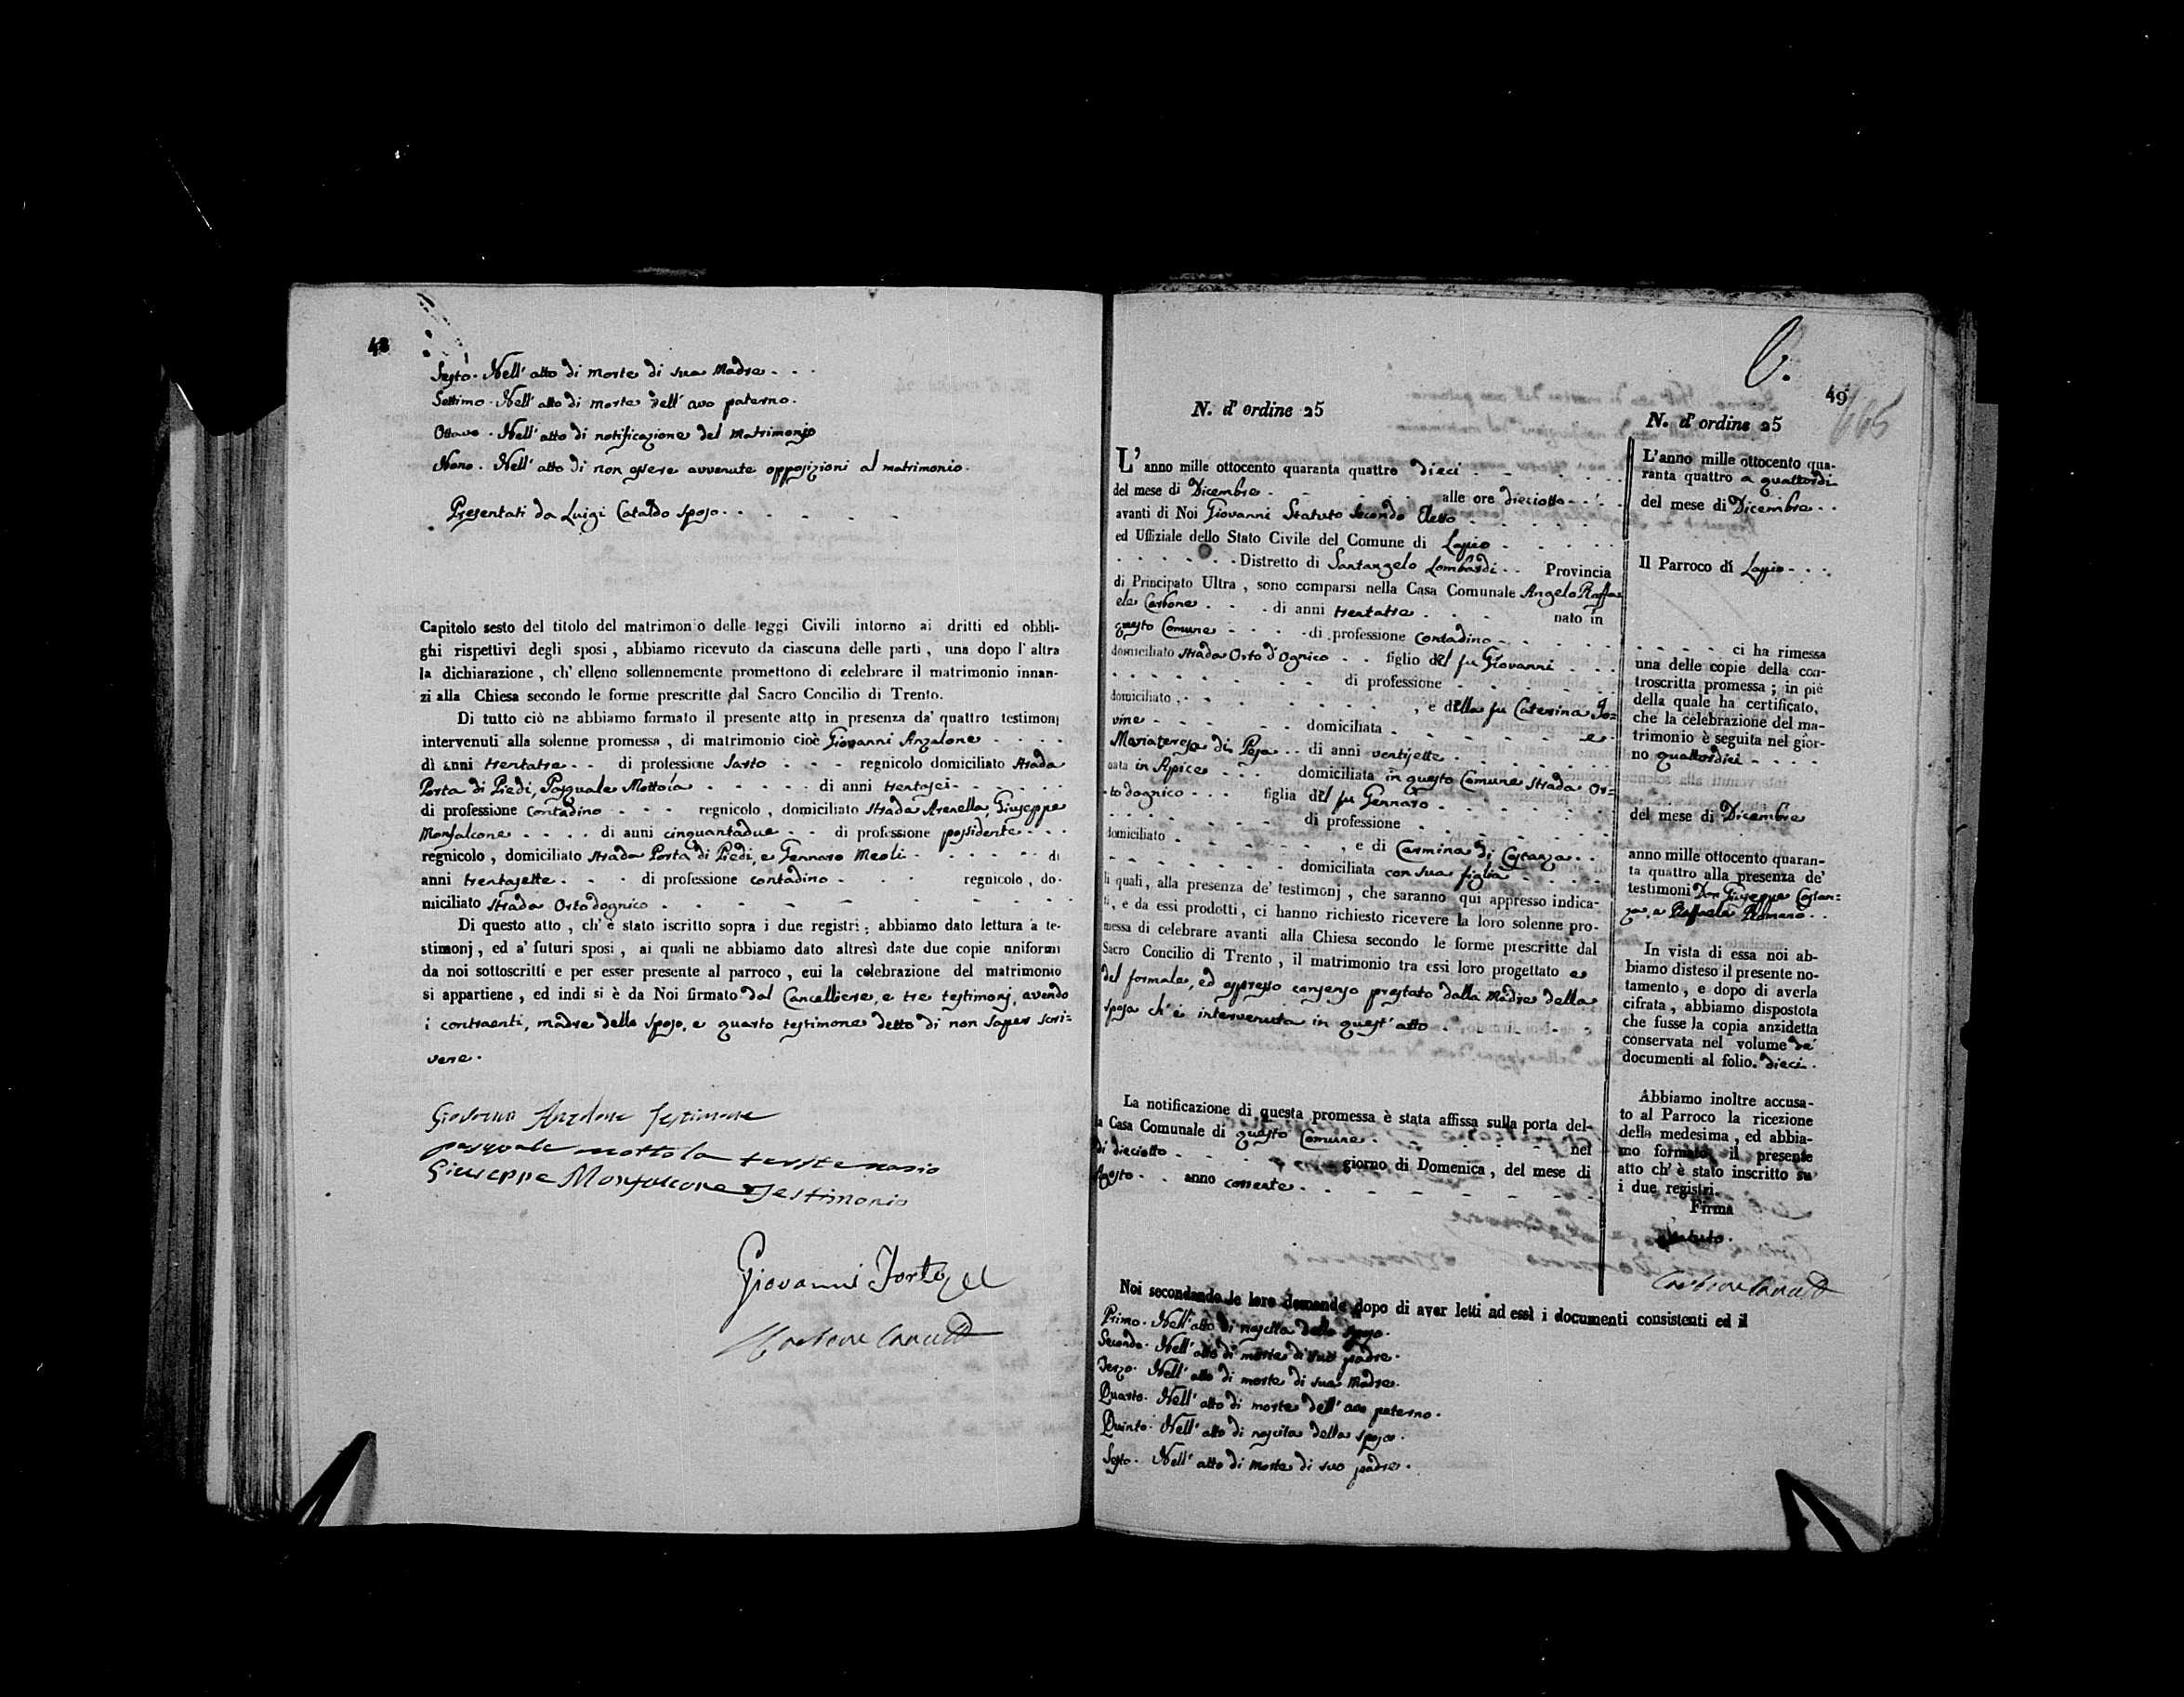 48
Sesto. Nell' atto di morte di sua Madre . . .
Settimo. Nell' atto di morte dell' avo paterno.
Ottavo. Nell' atto di notificazione del matrimonio
Nono. Nell' atto di non essere avvenute opposizioni al matrimonio.
Presentati da Luigi Cataldo sposo. . . . . .
Capitolo sesto del titolo del matrimonio delle leggi Civili intorno ai dritti ed obbli-
ghi rispettivi degli sposi, abbiamo ricevuto da ciascuna delle parti, una dopo l' altra
la dichiarazione, ch' elleno sollennemente promettono di celebrare il matrimonio innan-
zi alla Chiesa secondo le forme prescritte dal Sacro Concilio di Trento.
Di tutto ciò ne abbiamo formato il presente atto in presenza da' quattro testimonj
intervenuti alla solenne promessa, di matrimonio cioè Giovanni Anzalone . . . .
di anni trentatre . . di professione Sarto . . . regnicolo domiciliato Strada
Porta di Piedi, Pasquale Mottola . . . . . di anni trentasei . . . . .
di professione contadino . . . regnicolo, domiciliato Strada Arenella, Giuseppe
Monfalcone . . . . di anni cinquantadue . . di professione possidente . . .
regnicolo, domiciliato Strada Porta di Piedi, e Gennaro Meoli . . . . . di
anni trentasette . . . di professione contadino . . . regnicolo, do-
miciliato Strada Orto dognico . . . . . . . .
Di questo atto, ch' è stato iscritto sopra i due registri, abbiamo dato lettura a te-
stimonj, ed a' futuri sposi, ai quali ne abbiamo dato altresì date due copie uniformi
da noi sottoscritti e per esser presente al parroco, cui la celebrazione del matrimonio
si appartiene, ed indi si è da Noi firmato dal Cancelliere, e tre testimonj, avendo
i contraenti, madre dello sposo, e quarto testimone detto di non saper scri=
vere.
Giovanni Anzalone Testimone
pasquale mottola
Giuseppe Monfalcone Testimonio
Giovanni
49
N. d' ordine 25
L' anno mille ottocento quaranta quattro dieci . . . . .
del mese di Dicembre . . . . . alle ore dieciotto . . .
avanti di Noi Giovanni Statuto Secondo Eletto . . . . .
ed Uffiziale dello Stato Civile del Comune di Lapio . . . . .
. . . . . . Distretto di Santangelo Lombardi . . Provincia
di Principato Ultra, sono comparsi nella Casa Comunale Angelo Raffa
ele Carbone . . . di anni trentatre . . . . nato in
questo Comune . . . . di professione contadino . . . . .
domiciliato Strada Orto d' Ognico . . figlio del fu Giovanni . . .
. . . . . . . . di professione . . . . . .
domiciliato . . . . . . . . , e della fu Caterina Jo=
vine . . . . . domiciliata . . . . . . e
Mariateresa di Pesa . . di anni ventisette . . . . . .
nata in Apice . . . domiciliata in questo Comune Strada Or=
to dognico . . . figlia del fu Gennaro . . . . . .
. . . . . . di professione . . . . . .
domiciliato . . . . . . , e di Carmina di Costanza . .
. . . . . . . domiciliata con sua figlia . . . .
li quali, alla presenza de' testimonj, che saranno qui appresso indica-
ti, e da essi prodotti, ci hanno richiesto ricevere la loro solenne pro-
messa di celebrare avanti alla Chiesa secondo le forme prescritte dal
Sacro Concilio di Trento, il matrimonio tra essi loro progettato e
del formale, ed espresso consenso prestato dalla Madre della
sposa ch' è intervenuta in quest' atto . . . . . .
La notificazione di questa promessa è stata affissa sulla porta del-
la Casa Comunale di questo Comune . . . . . . nel
dì dieciotto . . . . . giorno di Domenica, del mese di
Agosto . . anno corrente . . . . . . . .
Noi secondando le loro demande dopo di aver letti ad essi i documenti consistenti ed il
Primo. Nell' atto di nascita dello sposo.
Secondo. Nell' atto di morte di suo padre.
Terzo. Nell' atto di morte di sua Madre.
Quarto. Nell' atto di morte dell' avo paterno.
Quinto. Nell' atto di nascita della sposa.
Sesto. Nell' atto di morte di suo padre.
N. d' ordine 25
L' anno mille ottocento qua-
ranta quattro a quattordi
del mese di Dicembre . .
Il Parroco di Lapio . . .
. . . . . ci ha rimessa
una delle copie della con-
troscritta promessa; in piè
della quale ha certificato,
che la celebrazione del ma-
trimonio è seguita nel gior-
no quattordici . . . .
del mese di Dicembre
anno mille ottocento quaran-
ta quattro alla presenza de'
testimoni Don Giuseppe Costan=
za, e Raffaela Romano . .
In vista di essa noi ab-
biamo disteso il presente no-
tamento, e dopo di averla
cifrata, abbiamo dispostota
che fusse la copia anzidetta
conservata nel volume de'
documenti al folio. dieci.
Abbiamo inoltre accusa-
to al Parroco la ricezione
della medesima, ed abbia-
mo formato il presente
atto ch' è stato inscritto su
i due registri.
Firma
Statuto.